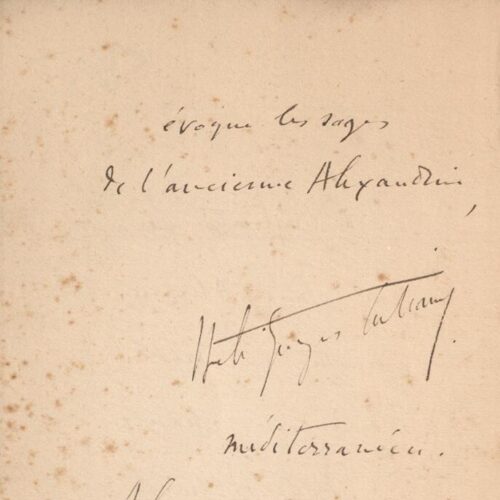 évoque les sages
de l'ancienne Alexandrie,
Georges
méditerranéen.